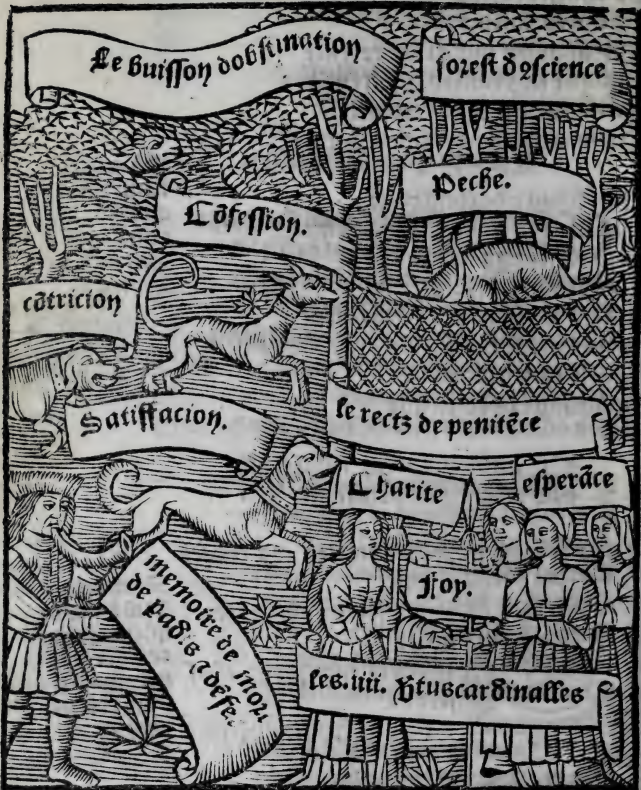 Le buisson dobstination
forest d ꝯscience
Peche.
Cōfession.
cōtricion
Satiffacion.
le rectz de penitēce
Charite
esperāce
foy.
memoire de mou
de padis ⁊ dēfe.
les.iiii. Vtuscardinalles